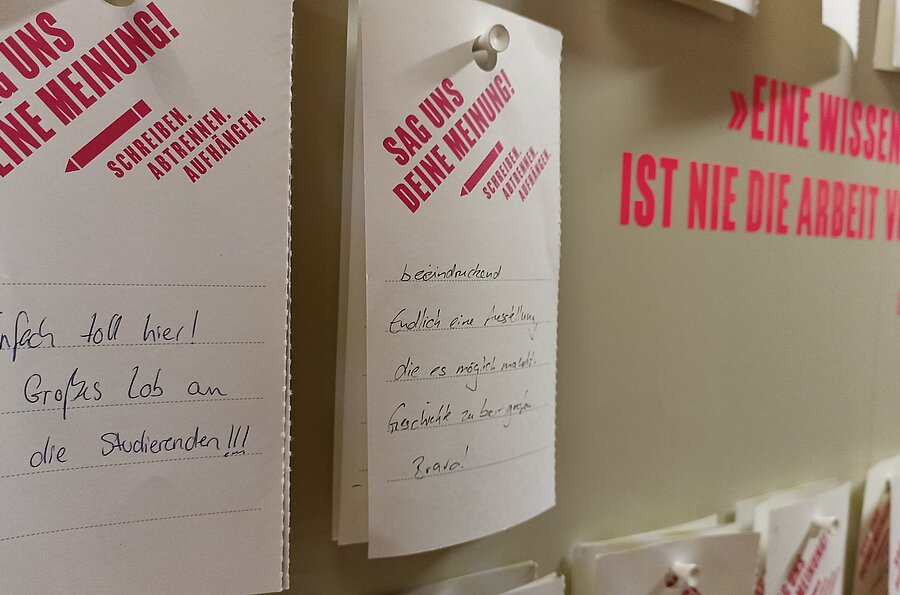 G UNS
EINE MEINUNG!
SCHREIBEN.
ABTRENNEN.
AUFHÄNGEN.
nfach toll hier!
Großes Lob an
die Studierenden!!!
SAG UNS
DEINE MEINUNG!
SCHREIBEN.
ABTRENNEN.
AUFHÄNGEN.
beeindruckend
Endlich eine Ausstellung
die es möglich macht.
Geschichte zu be-greifen
Bravo!
»EINE WISSEN
IST NIE DIE ARBEIT V
MEINUNG!